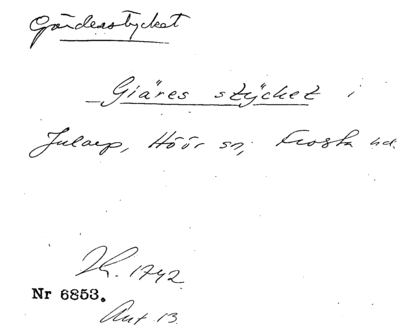 Gärdesstycket
Giäres stycket i
Julaep, Höör sn, Frosta hd.
Lh. 1742
Nr 6853.
Ant 13.